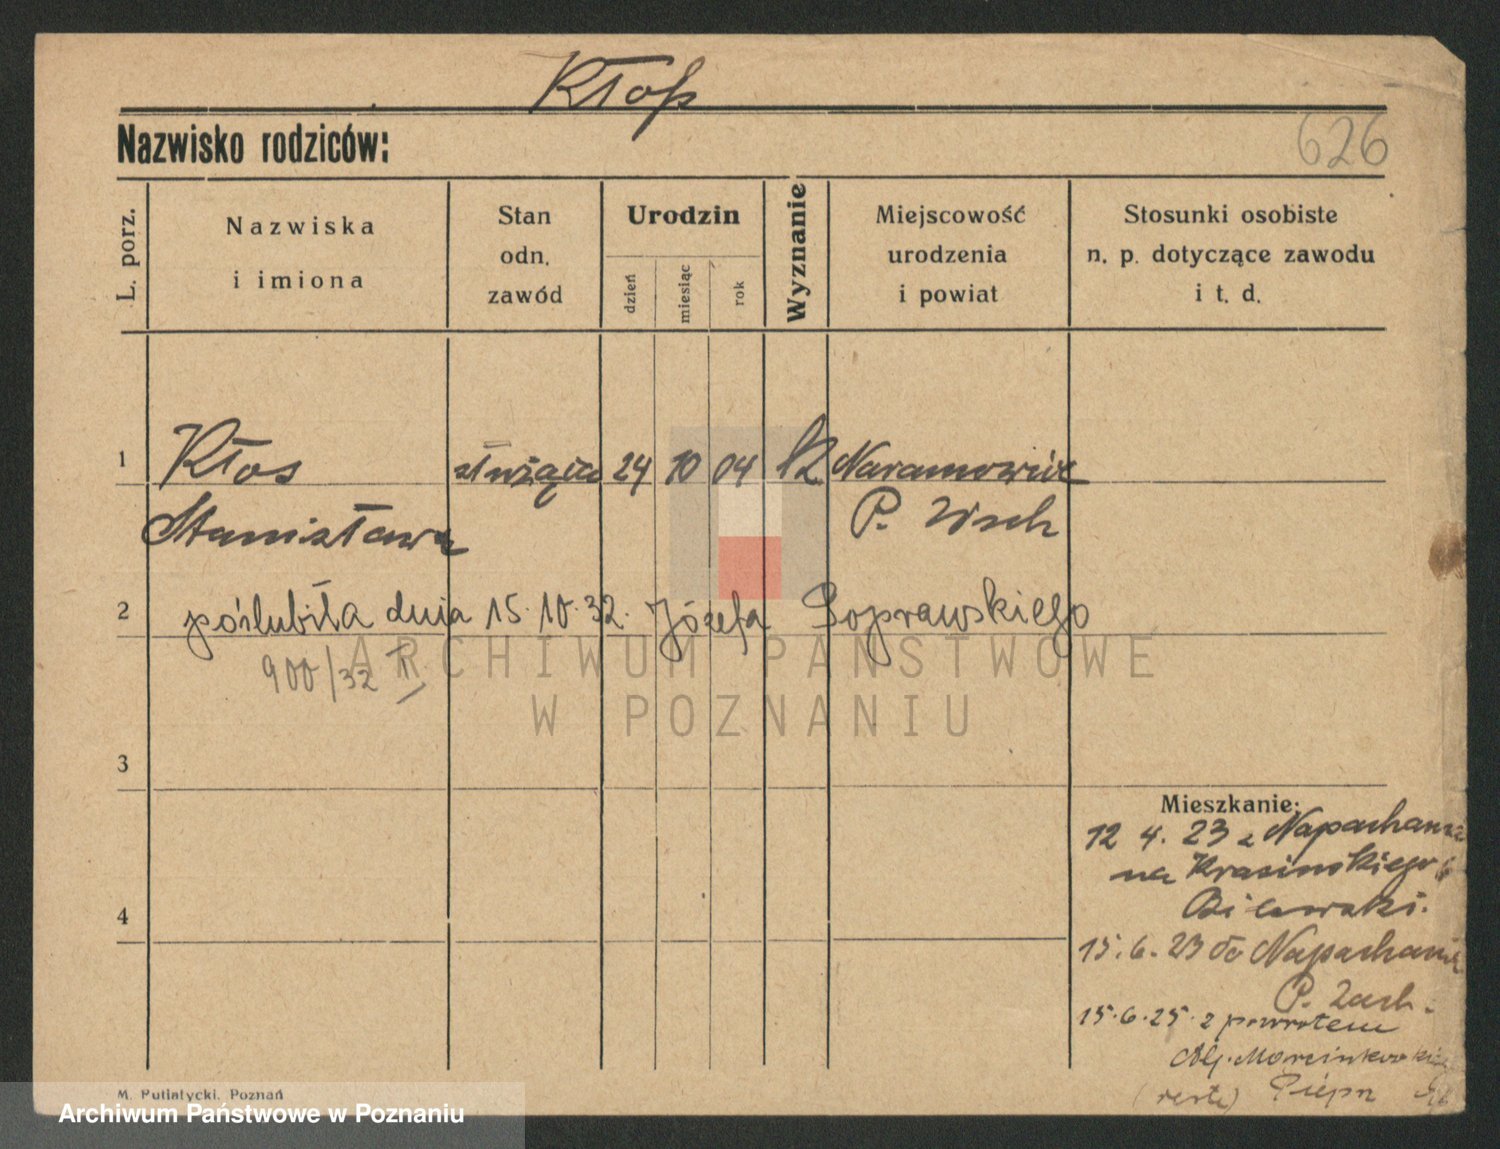 Kłos
Nazwisko rodziców:
626
L. porz.
Nazwiska
i imiona
Stan
odn.
zawód
Urodzin
dzień
miesiąc
rok
Wyznanie
Miejscowość
urodzenia
i powiat
Stosunki osobiste
n. p. dotyczące zawodu
i t. d.
1 Kłos służąca 24 10 04 Naramowice
Stanisława P. Wsch
2 poślubiła dnia 15.10.32. Józefa Soprawskiego
900/32 II
ARCHIWUM PAŃSTWOWE
W POZNANIU
3
Mieszkanie:
12 4. 23 z Napachania
na Krasińskiego
4
15. 6. 23 do Napachanie
P. Zach.
15.6.25. z powrotem
Marcinkowskiego
M. Putiatycki, Poznań
Archiwum Państwowe w Poznaniu